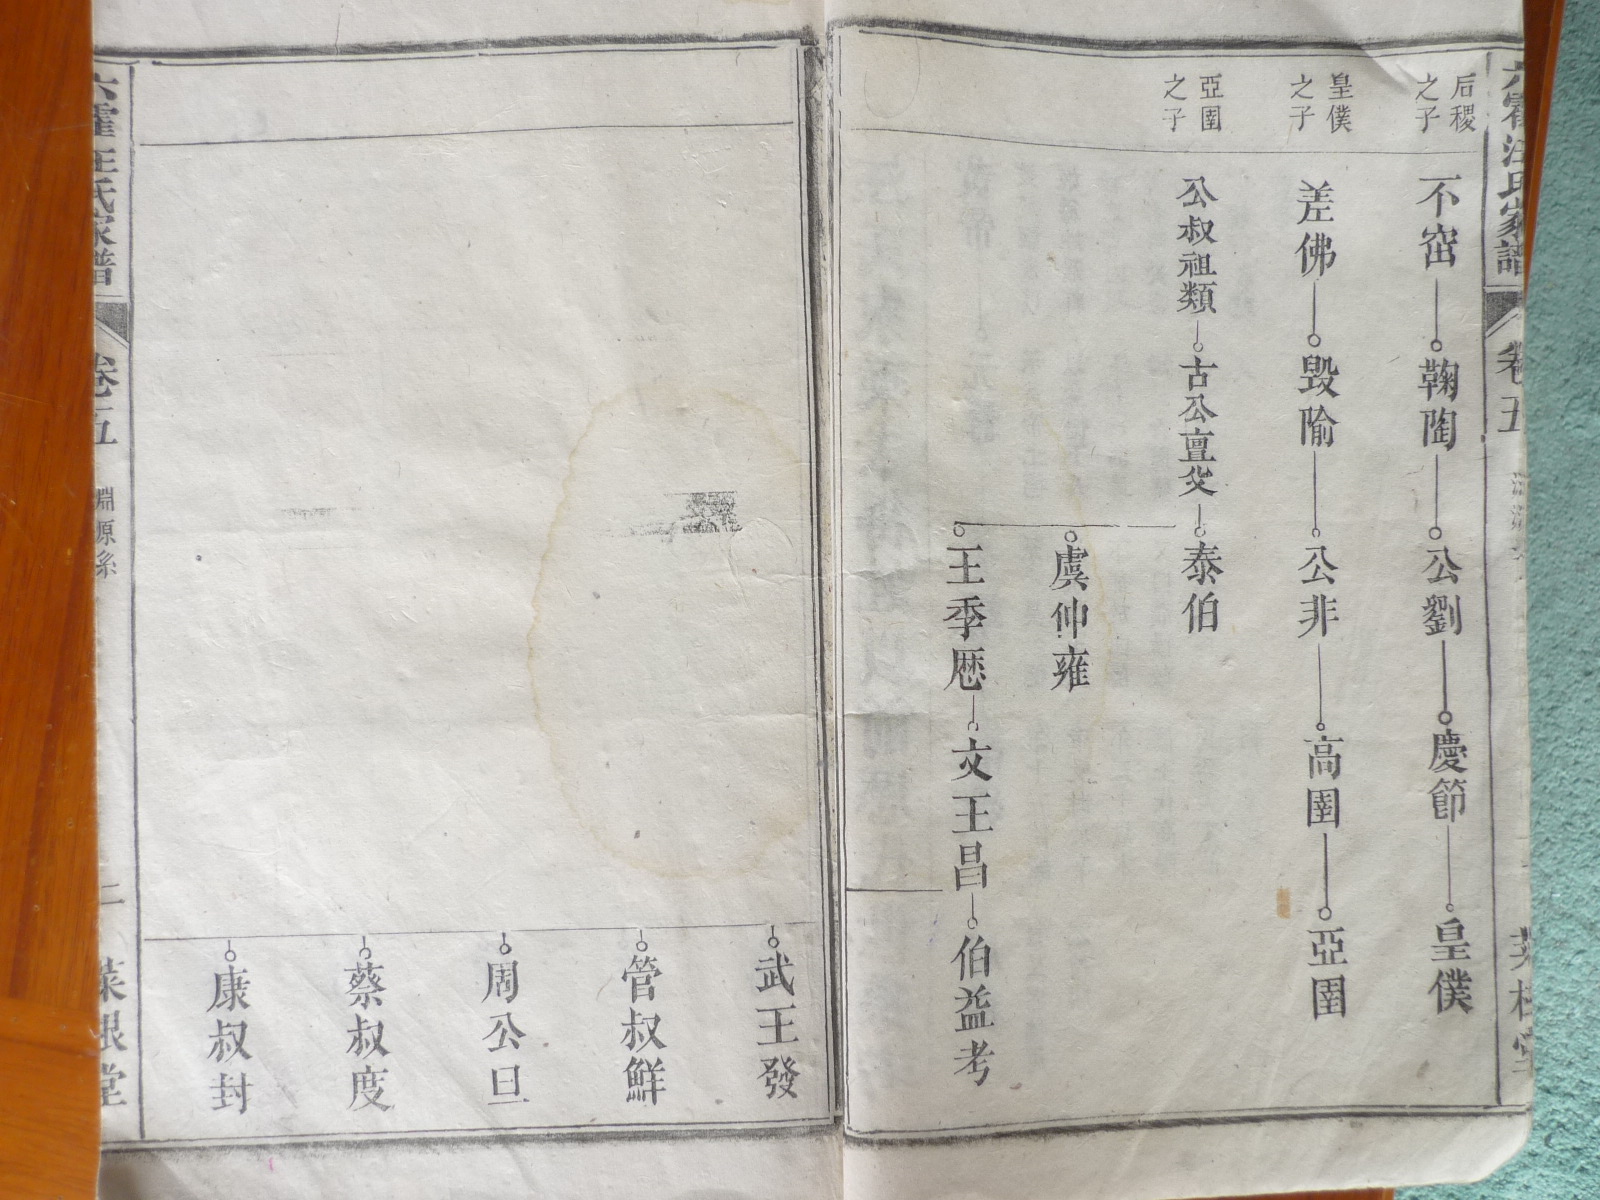 六霍汪氏家譜
卷五
后稷
之子
不窋 鞠陶 公劉 慶節 皇僕
皇僕
之子
差佛 毁隃 公非 高圉 亞圉
亞圉
之子
公叔祖類 古公亶父 泰伯
虞仲雍
王季歷 文王昌 伯益考
武王發
管叔鮮
周公旦
蔡叔度
康叔封
六霍汪氏家譜
卷五
淵源系
二
菜根堂